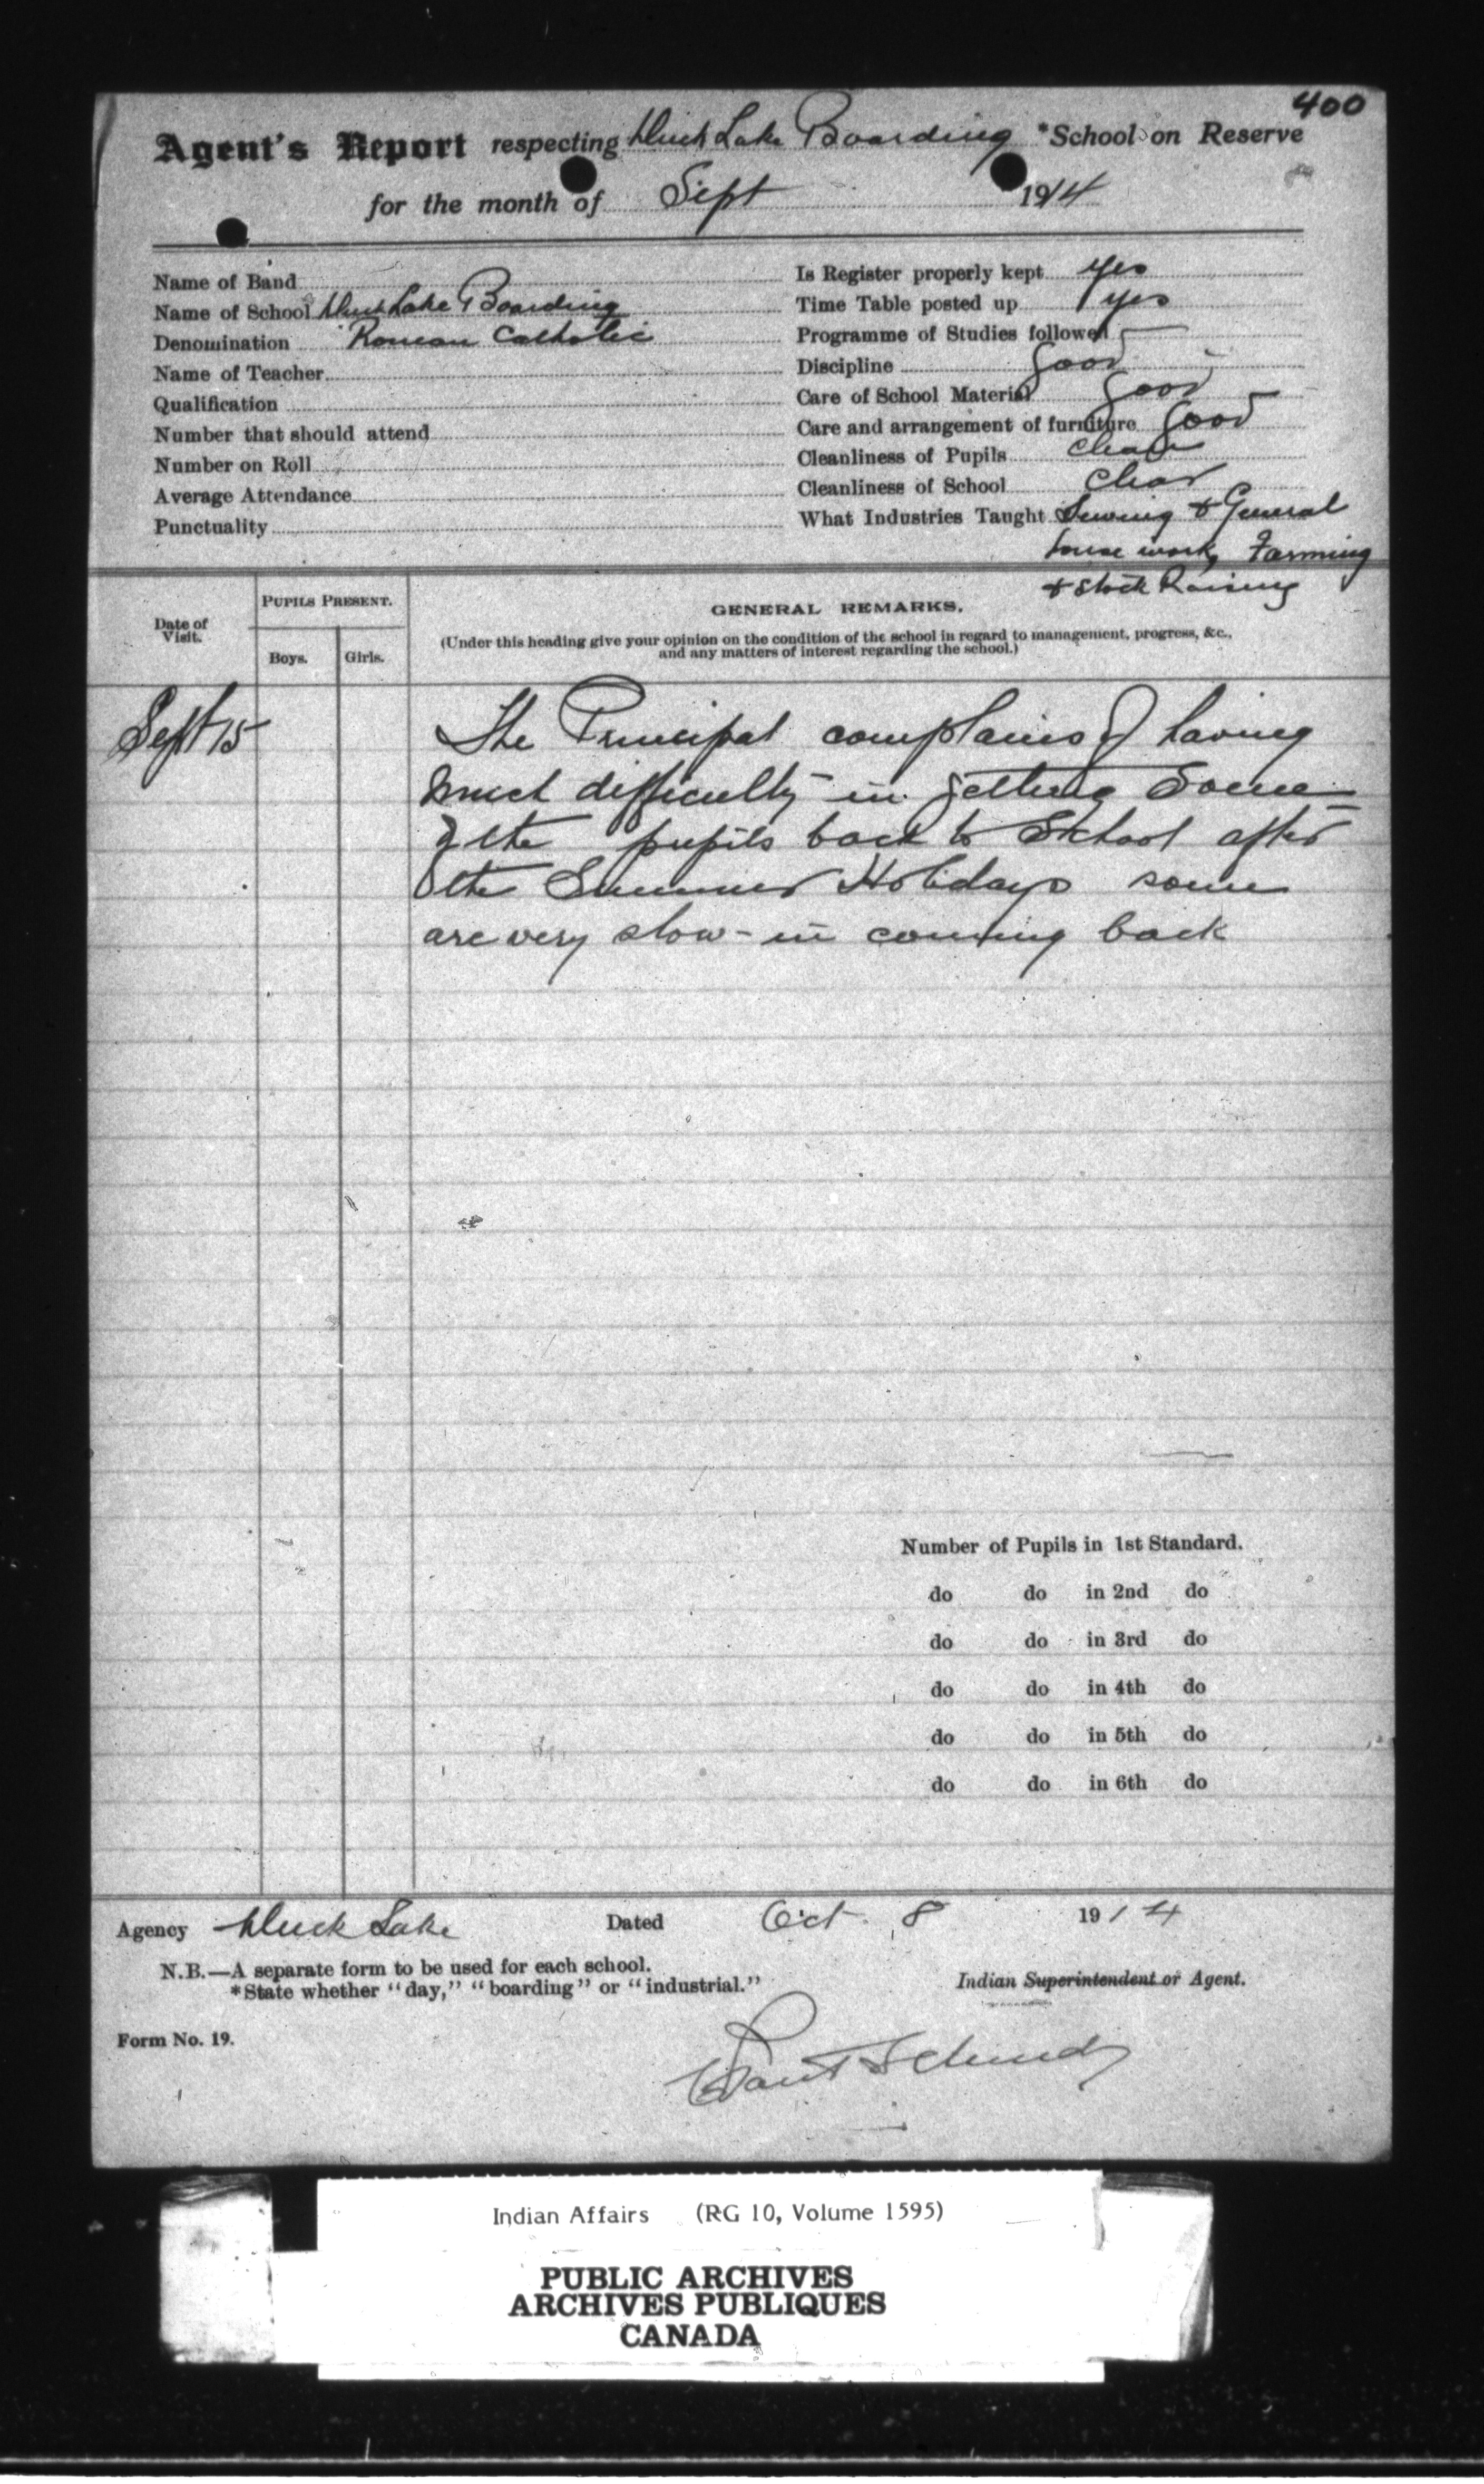 400
Agent's Report respecting Duck Lake Boarding *School on Reserve
for the month of Sept 1914
Name of Band
Name of School Duck Lake Boarding
Denomination Roman Catholic
Name of Teacher
Qualification
Number that should attend
Number on Roll
Average Attendance
Punctuality
Is Register properly kept yes
Time Table posted up yes
Programme of Studies followed
Discipline Good
Care of School Material Good
Care and arrangement of furniture Good
Cleanliness of Pupils Clean
Cleanliness of School Clean
What Industries Taught Sewing & General
house work, Farming
& Stock Raising
Date of Visit.
PUPILS PRESENT.
Boys. Girls.
GENERAL REMARKS.
(Under this heading give your opinion on the condition of the school in regard to management, progress, &c.,
and any matters of interest regarding the school.)
Sept 15 The Principal complains of having
much difficulty in getting some
of the pupils back to School after
the Summer Holidays some
are very slow - in coming back
Number of Pupils in 1st Standard.
do do in 2nd do
do do in 3rd do
do do in 4th do
do do in 5th do
do do in 6th do
Agency Duck Lake Dated Oct. 8 1914
N.B.—A separate form to be used for each school.
*State whether "day," "boarding" or "industrial."
Indian Superintendent or Agent.
Form No. 19.
Indian Affairs (RG 10, Volume 1595)
PUBLIC ARCHIVES
ARCHIVES PUBLIQUES
CANADA